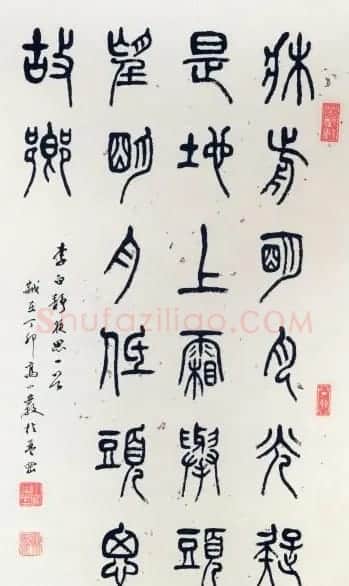 牀前明月光疑
是地上霜舉頭
望明月低頭思
故鄉
李白靜夜思一首
歲在丁卯高
Shufaziliao.COM